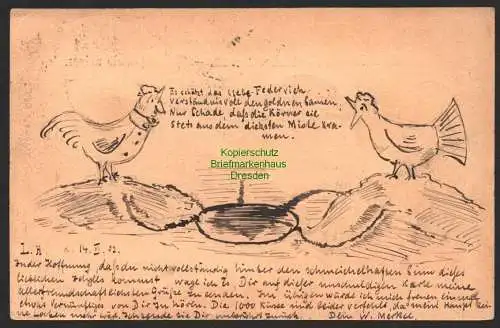 Es schätzt das liebe Federvieh
verständnisvoll den goldnen Samen.
Nur Schade, daß die Körner sie
Stets aus dem dicksten Miste kra-
men.
Kopierschutz
Briefmarkenhaus
Dresden
L. H. 14. II. 02.
In der Hoffnung, daß du nicht vollständig hinter den schmeichelhaften Sinn dieses
lieblichen Idylls kommst, wage ich es Dir auf dieser unschuldigen Karte meine
allerfreundschaftlichsten Grüße zu senden. Im übrigen würde ich mich freuen einmal
etwas Vernünftiges von Dir zu hören. Die 1000 Küsse sind leider verfehlt, da mein
keine Locken mehr Dir zurück. Dein W. Merkel.